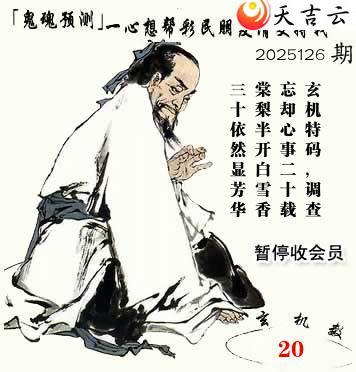 天吉云
「鬼魂预测」一心想帮彩民朋
2025126 期
玄机特码,调查
忘却心事二十载
棠梨半开白雪香
三十依然显芳华
暂停收会员
玄机数
20